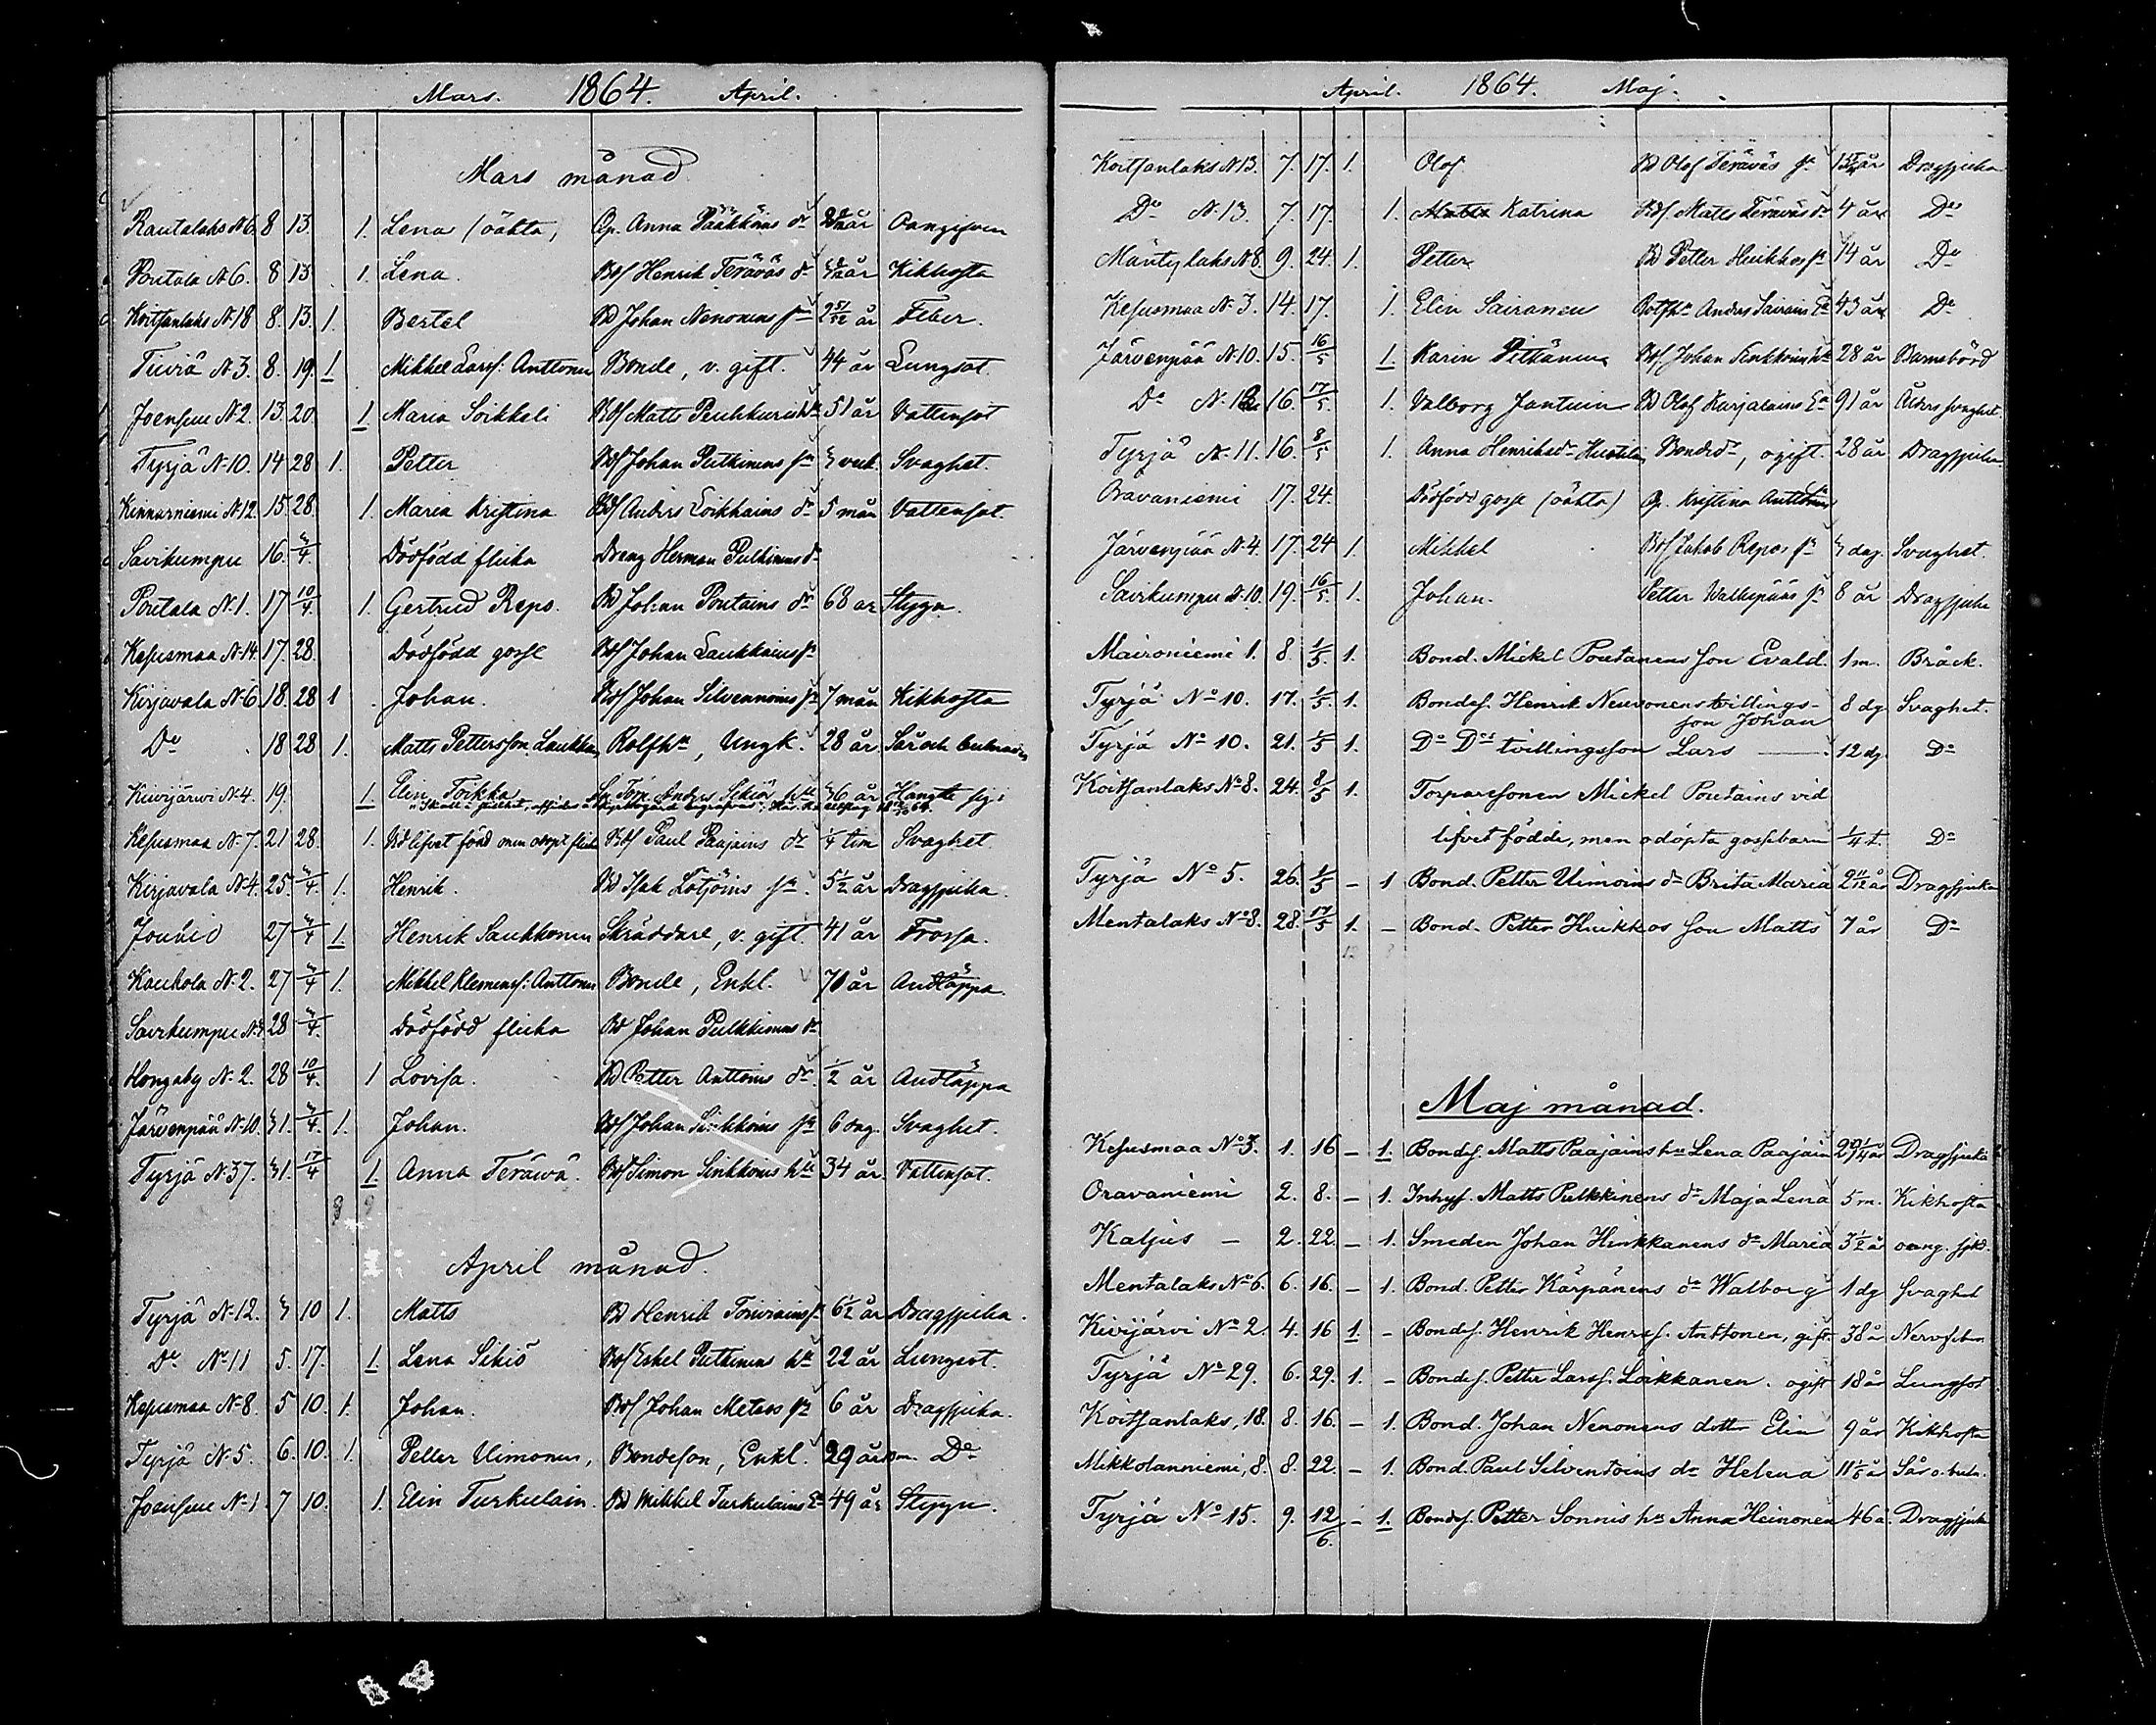 Mars. 1864. April.
Mars månad
Rautalaks N 6. 8 13. 1. Lena (oäkta) Qp. Anna Pääkköins dr år Oangifven
Poutala N 6. 8 13 1. Lena. Bdf Henrik Teräväs dr år Kikhosta
Koitsanlaks N 18 8. 13. 1. Bertel Bd Johan Nenonens sn 2 5/12 år Feber.
Tiuvia N. 3. 8. 19. 1. Mikkel Larsf: Anttonen Bonde, v. gift. 44 år Lungsot.
Joensuu N 2. 13. 20. 1. Maria Soikkeli Bdf Matts Peuhkuris hu 51 år Vattensot
Tyrjä N. 10. 14 28 1. Petter Bdf Johan Putkinens sn 3 veck. Svaghet.
Kinnarniemi N. 12. 15. 28. 1. Maria Kristina Bdf Anders Loikkains dr 5 mån Vattensot.
Savikumpu 16. 3/4. Dödfödd flicka Dreng Herman Pulkinens dr
Poutala N. 1. 17 10/4. 1. Gertrud Repo. Bd Johan Poutains dr 68 år Stygn.
Kesusmaa N. 14. 17. 28. Dödfödd gosse Bdf Johan Laukkains sn
Kirjavala N. 6. 18. 28 1 Johan. Bdf Johan Silvennoins sn 7 mån Kikhosta
Do 18 28 1. Matts Pettersson Laukkan Rolfhn, Ungk. 28 år Sår och bulnader
Kivijärvi N. 4. 19. 1. Elin Toikka Anders Sikiös hu 36 år Hängde sig
Kesusmaa N. 7. 21 28. 1. Vid lifvet född men odöpt flicka Bdf Paul Paajains dr 1/4 tim Svaghet.
Kirjavala N. 4. 25. 3/4. 1. Henrik. Bd Isak Lötjöins sn. 5 1/2 år Dragsjuka.
Joukio 27 3/4 1. Henrik Saukkonen Skräddare, v. gift. 41 år Frossa.
Kaukola N. 2. 27 3/4 1. Mikkel Klemensf: Anttonen Bonde, Enkl. 70 år Andtäppa.
Savikumpu N. 28 3/4. Dödfödd flicka Bd Johan Pulkkinens dr
Hongaby N. 2. 28 10/4. 1 Lovisa. Bd Petter Anttoins dr. 1/2 år Andtäppa
Järvenpää N. 10. 31. 3/4. 1. Johan. Bdf Johan Sinkkoins sn 6 dag. Svaghet.
Tyrjä N. 37. 31. 17/4 1. Anna Teräwä. Bdf Simon Sinkkoins hu 34 år. Vattensot.
8 9
April månad.
Tyrjä N. 12. 3 10 1. Matts Bd Henrik Toiviains sn 6 1/2 år Dragsjuka.
Do No 11 5. 17. 1. Lena Sikiö Bdf Eskel Putkinens hu 22 år Lungsot.
Kesusmaa N. 8. 5 10. 1. Johan. Bdf Johan Metsos sn 6 år Dragsjuka.
Tyrjä N. 5. 6. 10. 1. Petter Uimonen, Bondeson, Enkl. 29 år Do
Joensuu N. 1. 7 10. 1. Elin Turkulain. Bd Mikkel Turkulains Ea 49 år Stygn.
April. 1864. Maj.
Koitsanlaks N 13. 7. 17. 1. Olof. Bd Olof Teräväs sn år Dragsjuka
Do N. 13. 7. 17. 1. Katrina Bdf. Matts Teräväs dr 4 år Do
Mäntylaks N 8. 9. 24. 1. Petter Bd Petter Hinkkos sn 14 år Do
Kesusmaa N. 3. 14. 17. 1. Elin Sairanen Rotfhn Anders Sairains Ea 43 år Do
Järvenpää N. 10. 15. 16/5 1. Karin Pitkänen Bdf. Johan Sinkkoins hu 28 år Barnsbörd
Do N. 16. 17/5. 1. Valborg Jantuin Bd Olof Karjalains Ea 91 år Ålders svaghet.
Tyrjä N. 11. 16. 8/5 1. Anna Henriksdr Bondedr, ogift. 28 år Dragsjuka
Oravaniemi 17. 24. Dödfödd gosse (oäkta) Qp. Kristina Anttoins
Järvenpää N. 4. 17. 24 1. Mikkel Bdf Jakob Repos sn 3 dag. Svaghet.
Savikumpu N. 10. 19. 16/5. 1. Johan. Petter Walkapääs sn 8 år Dragsjuka
Maironiemi 1. 8. 1/5. 1. Bond. Mickel Poutanens son Evald. 1 m. Bråck.
Tyrjä No 10. 17. 1/5. 1. Bondes. Henrik Neuvonens tvillings- 8 dg Svaghet.
son Johan
Tyrjä No 10. 21. 1/5 1. Do Dos tvillingsson Lars — 12 dg. Do
Koitsanlaks No 8. 24. 8/5 1. Torparesonen Mickel Poutains vid
lifvet födde, men odöpta gossebarn 1/4 t. Do
Tyrjä No 5. 26. 1/5 - 1 Bond. Petter Uimoins dr Brita Maria 2 11/12 år Dragsjuka
Mentalaks No 8. 28. 17/5 1. - Bond. Petter Hinkkos son Matts 7 år Do
12 8
Maj månad.
Kesusmaa No 3. 1. 16 - 1. Bondes. Matts Paajains hu Lena Paajain 29 1/4 år Dragsjuka
Oravaniemi 2. 8. - 1. Inhys. Matts Pulkkinens dr Maja Lena 5 m. Kikhosta
Kaljus - 2. 22. - 1. Smeden Johan Hinkkanens dr Maria 3 1/2 år oang. sjkd.
Mentalaks No 6. 6. 16. - 1. Bond. Petter Kärpänens dr Walborg 1 dg Svaghet
Kivijärvi No 2. 4. 16 1. - Bondes. Henrik Henrs. Anttonen, gift 38 å Nervfeber
Tyrjä No 29. 6. 29. 1. - Bondes. Petter Larss. Loikkanen. ogift 18 år Lungsot
Koitsanlaks, 18. 8. 16. - 1. Bond. Johan Nenonens dotter Elin 9 år Kikhosta
Mikkolanniemi, 8. 8. 22. - 1. Bond. Paul Silventoins dr Helena 11 1/6 år Sår o. buln.
Tyrjä No 15. 9. 12/6. - 1. Bondes. Petter Sonnis hu Anna Heinonen 46 å. Dragsjuka